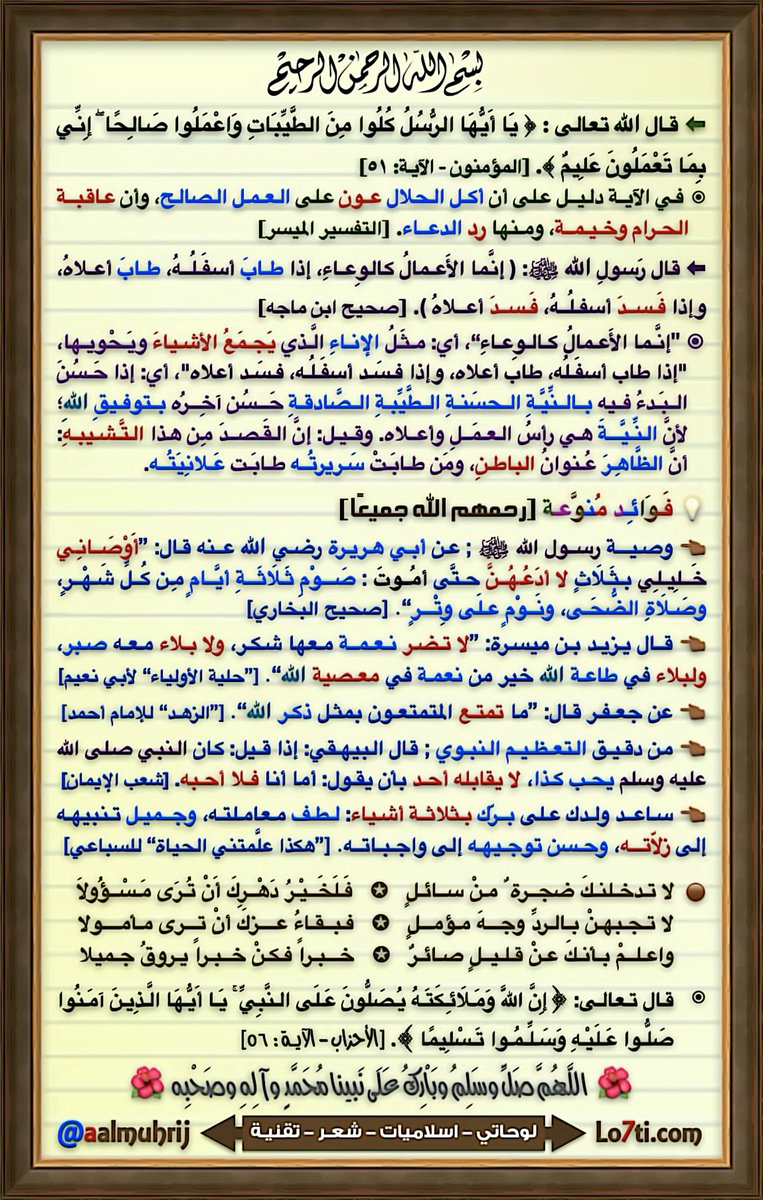 بسم الله الرحمن الرحيم
قال الله تعالى : ﴿ يَا أَيُّهَا الرُّسُلُ كُلُوا مِنَ الطَّيِّبَاتِ وَاعْمَلُوا صَالِحًا ۖ إِنِّي
بِمَا تَعْمَلُونَ عَلِيمٌ ﴾. [المؤمنون - الآية: ٥١]
في الآية دليل على أن أكل الحلال عون على العمل الصالح، وأن عاقبة
الحرام وخيمة، ومنها رد الدعاء. [التفسير الميسر]
قال رَسولِ الله ﷺ: ( إنَّما الأَعمالُ كالوِعاءِ، إذا طابَ أسفَلُهُ، طابَ أعلاهُ،
وإذا فَسدَ أسفلُهُ، فَسدَ أعلاهُ ). [صحيح ابن ماجه]
"إنَّما الأَعمالُ كالوِعاءِ"، أي: مثَلُ الإناءِ الَّذي يَجمَعُ الأشياءَ ويَحْويها،
"إذا طاب أسفَلُه، طاب أعلاه، وإذا فسَد أسفَلُه، فسَد أعلاه"، أي: إذا حَسُنَ
البَدءُ فيه بالنِّيَّةِ الحسَنةِ الطَّيِّبةِ الصَّادقةِ حَسُن آخِرُه بتوفيقِ الله؛
لأنَّ النِّيَّةَ هي رأسُ العمَلِ وأعلاه. وقيل: إنَّ القَصدَ مِن هذا التَّشبيهِ:
أنَّ الظَّاهِرَ عُنوانُ الباطنِ، ومَن طابَتْ سَريرتُه طابَت عَلانيَتُه.
فَوَائِد مُنوَّعة [رحمهم الله جميعًا]
وصية رسول الله ﷺ ; عن أبي هريرة رضي الله عنه قال: ”أَوْصَانِي
خَلِيلِي بثَلَاثٍ لا أدَعُهُنَّ حتَّى أمُوتَ : صَوْمِ ثَلَاثَةِ أيَّامٍ مِن كُلِّ شَهْرٍ،
وصَلَاةِ الضُّحَى، ونَوْمٍ علَى وِتْرٍ“. [صحيح البخاري]
قال يزيد بن ميسرة: ”لا تضر نعمة معها شكر، ولا بلاء معه صبر،
ولبلاء في طاعة الله خير من نعمة في معصية الله“. [”حلية الأولياء“ لأبي نعيم]
عن جعفر قال: ”ما تمتع المتمتعون بمثل ذكر الله“. [”الزهد“ للإمام أحمد]
من دقيق التعظيم النبوي ; قال البيهقي: إذا قيل: كان النبي صلى الله
عليه وسلم يحب كذا، لا يقابله أحد بأن يقول: أما أنا فلا أحبه. [شعب الإيمان]
ساعد ولدك على برك بثلاثة أشياء: لطف معاملته، وجميل تنبيهه
إلى زلاّته، وحسن توجيهه إلى واجباته. [”هكذا علَّمتني الحياة“ للسباعي]
لا تدخلنكَ ضجرة ٌ منْ سائلٍ ✪ فَلَخَيْرُ دَهْرِكَ أَنْ تُرَى مَسْؤُولاَ
لا تجبهنْ بالردِّ وجهَ مؤملٍ ✪ فبقاءُ عزكَ أنْ ترى مأمولا
واعلمْ بأنكَ عنْ قليلٍ صائرٌ ✪ خبراً فكنْ خبراً يروقُ جميلا
قال تعالى: ﴿ إِنَّ اللَّهَ وَمَلَائِكَتَهُ يُصَلُّونَ عَلَى النَّبِيِّ ۚ يَا أَيُّهَا الَّذِينَ آمَنُوا
صَلُّوا عَلَيْهِ وَسَلِّمُوا تَسْلِيمًا ﴾. [الأحزاب - الآية: ٥٦]
اللَّهُمَّ صَلِّ وسَلِمُ وبَارِكْ عَلَى نَبينا مُحَمَّدٍ وآلِهِ وصَحْبِه
Lo7ti.com لوحاتي - اسلاميات - شعر - تقنية @aalmuhrij